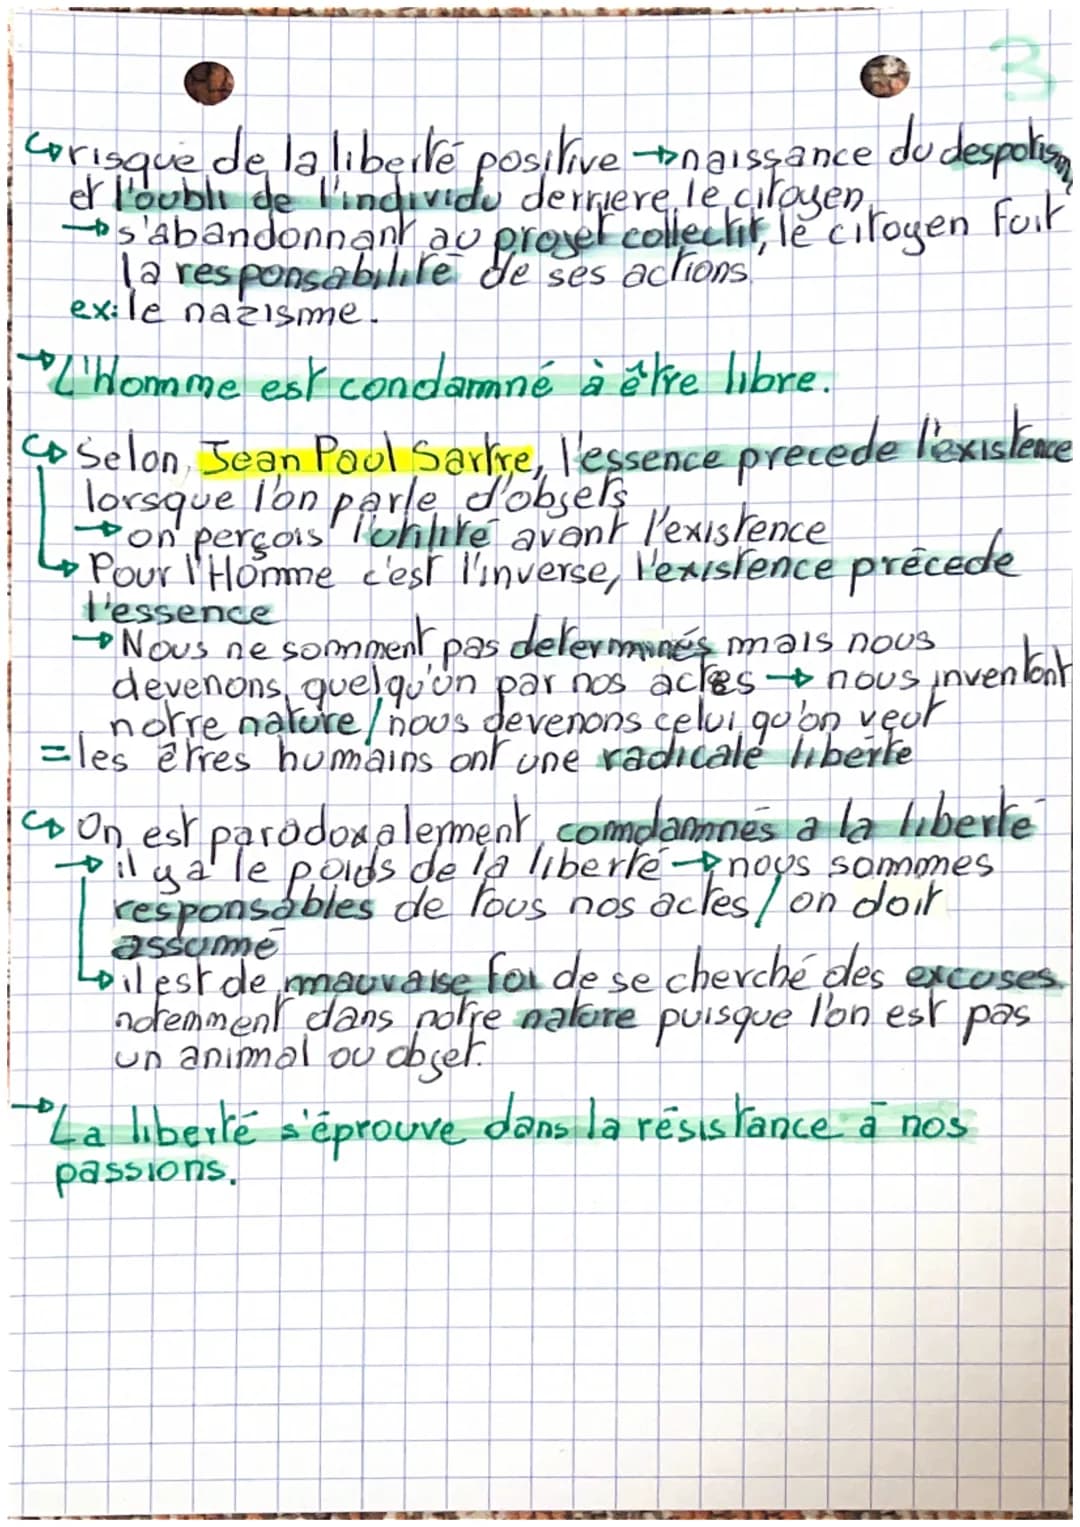 3
↳ risque de la liberté positive → naissance du despotism
et l'oubli de l'individu derriere le citoyen
→ s'abandonnant au projet collectif, le citoyen fuit
la responsabilité de ses actions.
ex: le nazisme.
→ L'Homme est condamné à être libre.
↳ Selon Jean Paul Sartre, l'essence precede l'existence
lorsque l'on parle d'objets
→ on perçois l'utilité avant l'existence
↳ Pour l'Homme c'est l'inverse, l'existence précede
l'essence
→ Nous ne somment pas determinés mais nous
devenons quelqu'un par nos actes → nous inventont
notre nature/nous devenons celui qu'on veut
= les êtres humains ont une radicale liberté
↳ On est paradoxalement comdamnés a la liberté
→ il y a le poids de la liberté → nous sommes
responsables de tous nos actes/on doit
assumé
↳ il est de mauvaise foi de se cherché des excuses
notemment dans notre nature puisque l'on est pas
un animal ou objet.
→ La liberté s'éprouve dans la résistance à nos
passions.